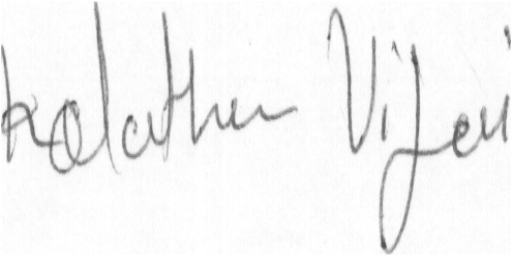 Kolathur Vijai